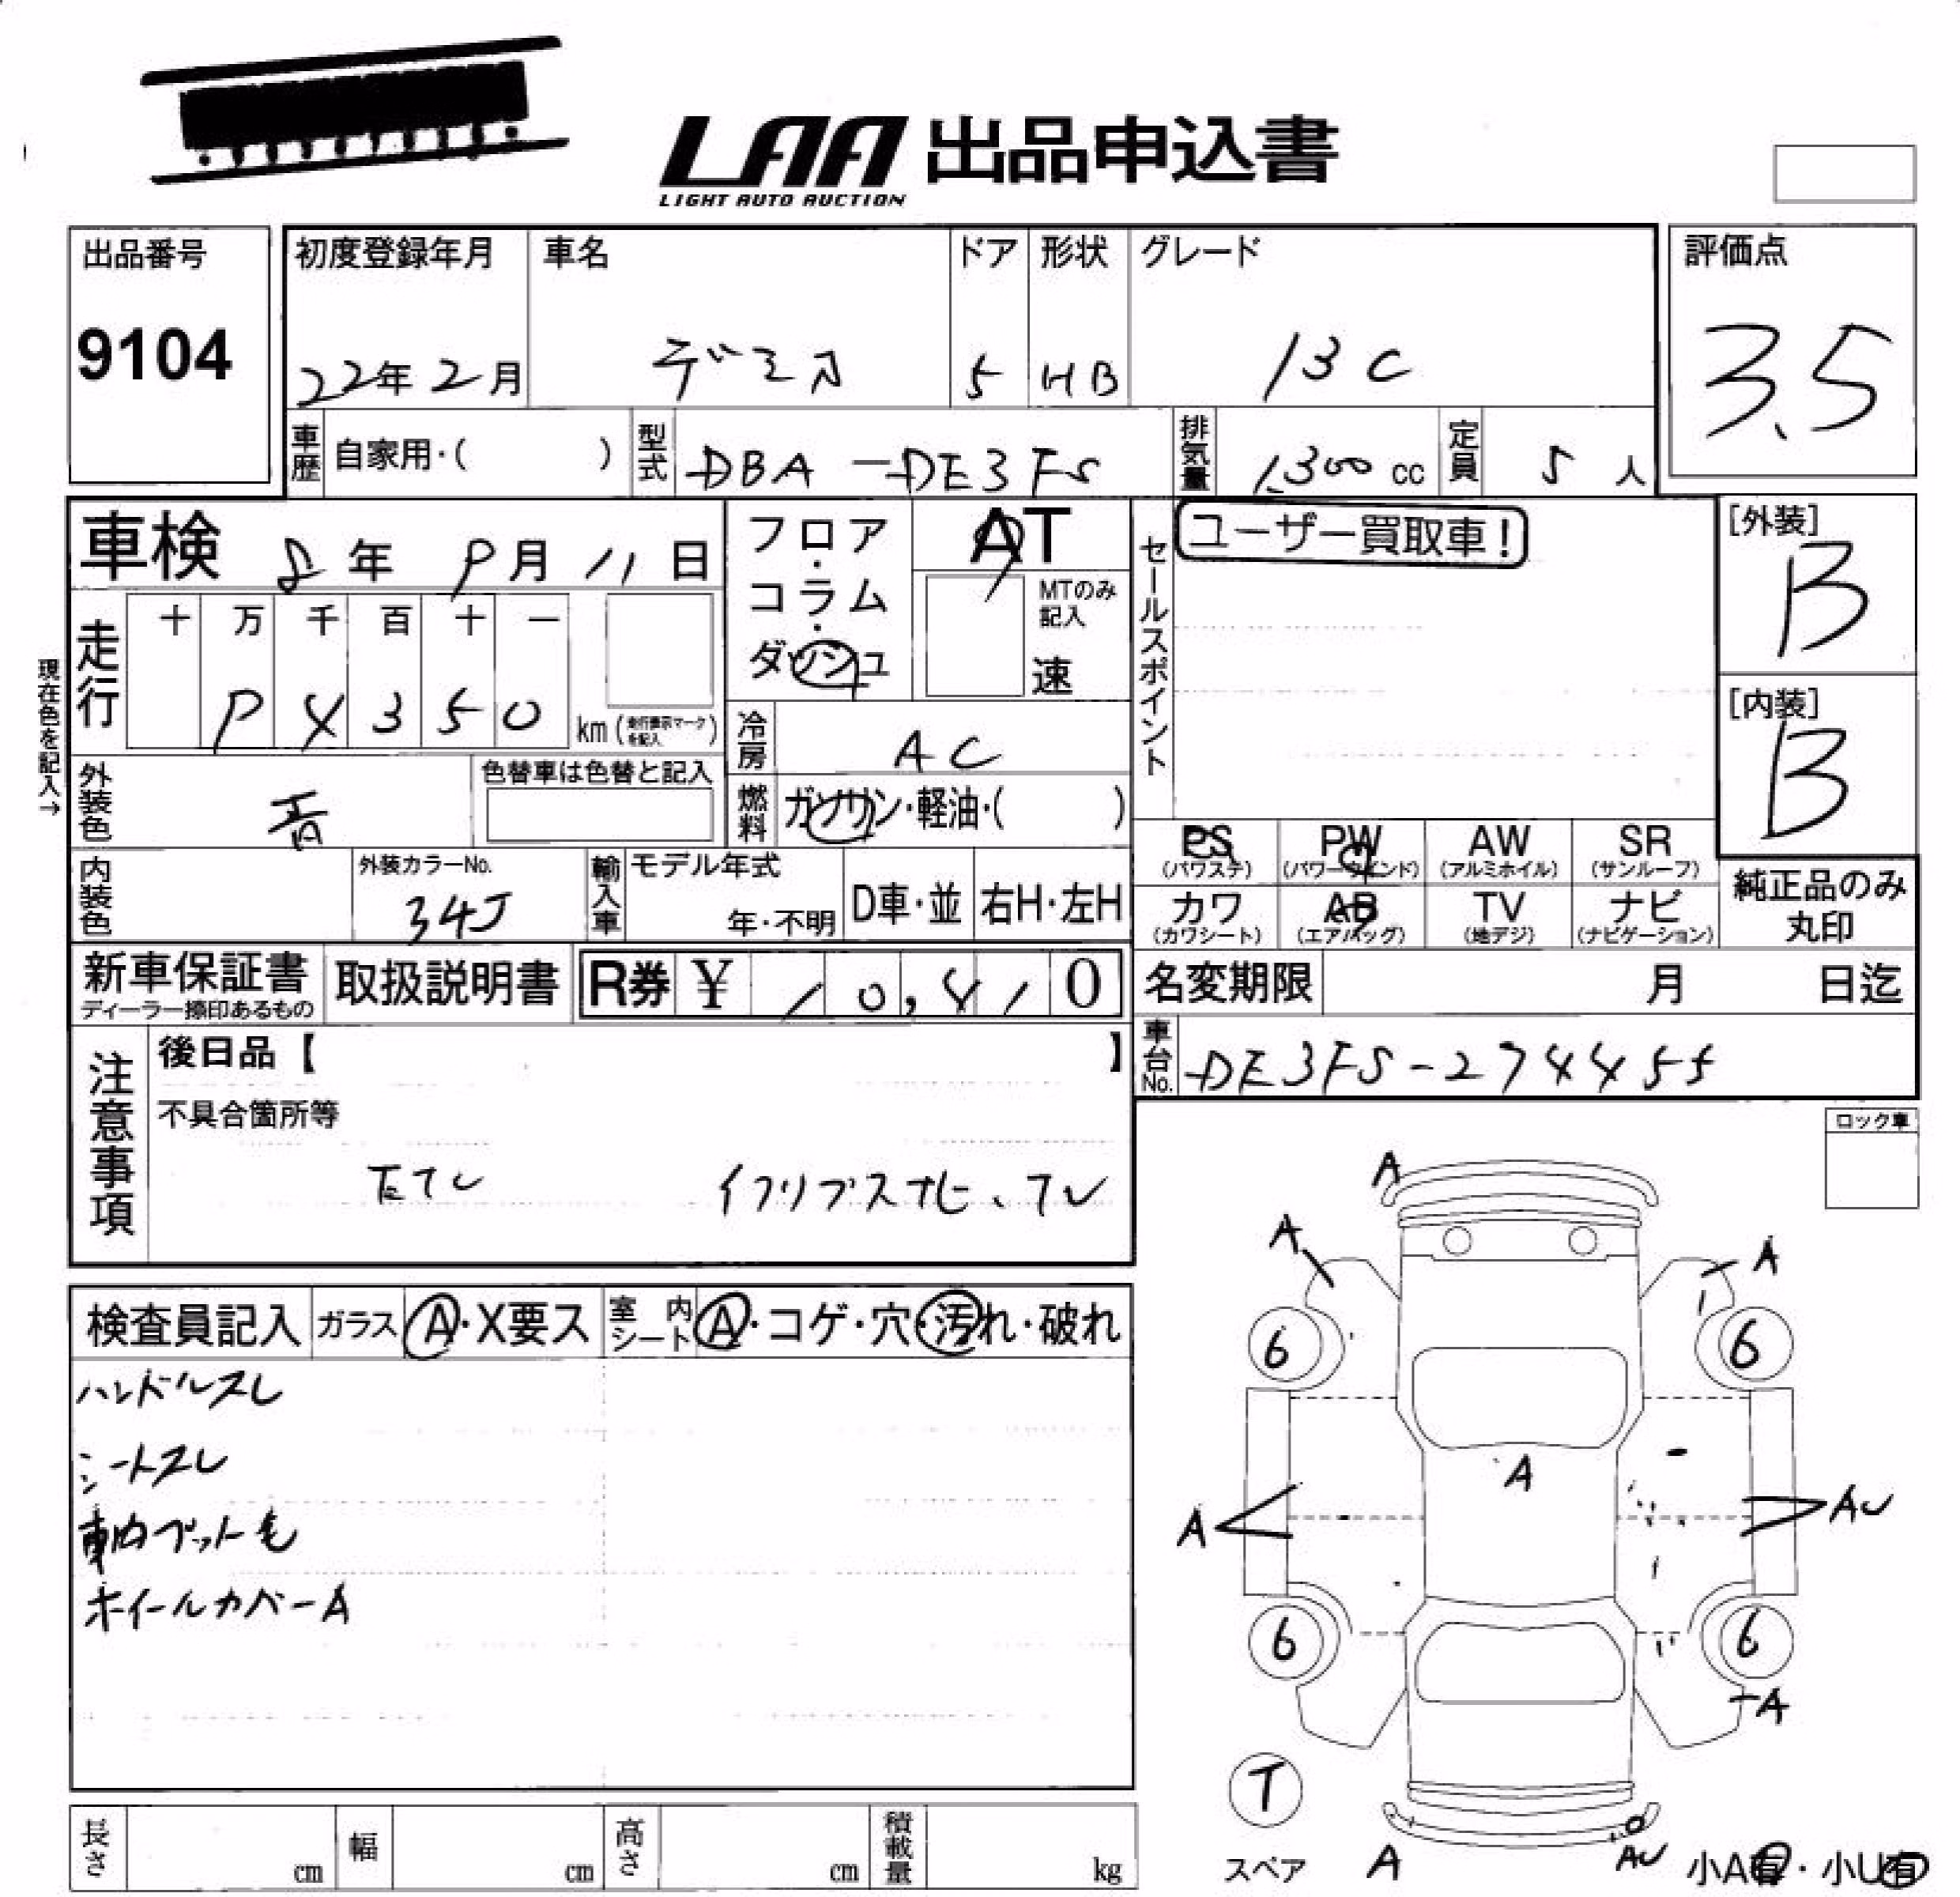 LAA 出品申込書
LIGHT AUTO AUCTION
出品番号 初度登録年月 車名 ドア 形状 グレード 評価点
9104 22年 2月 デミオ 5 HB 13C 3.5
車歴 自家用・( ) 型式 DBA-DE3FS 排気量 1,300 cc 定員 5 人
車検 8年 9月 11日
フロア・コラム・ダッシュ
AT
MTのみ記入
速
セールスポイント
ユーザー買取車!
[外装]
B
[内装]
B
現在色を記入→
走行 十 万 千 百 十 一
9 4 3 5 0 km (走行表示マークを記入)
冷房 AC
外装色 青 色替車は色替と記入
燃料 ガソリン・軽油・( )
PS PW AW SR
(パワステ) (パワーウインド) (アルミホイル) (サンルーフ)
カワ AB TV ナビ
(カワシート) (エアバッグ) (地デジ) (ナビゲーション)
純正品のみ
丸印
内装色 外装カラーNo. 34J 輸入車 モデル年式 年・不明 D車・並 右H・左H
新車保証書 取扱説明書 R券 ¥ 10,410
ディーラー捺印あるもの
名変期限 月 日迄
車台No. DE3FS-274455
注意事項
後日品【 】
不具合箇所等
ETC イクリプスナビ、TV
ロック車
検査員記入 ガラス A・X要ス 室内シート A・コゲ・穴・汚れ・破れ
ハンドルスレ
シートスレ
車内ペット毛
ホイールカバーA
A
A A
6 6
A
A AU
6 6
A
T
スペア A AU 小A有・小U有
長さ cm 幅 cm 高さ cm 積載量 kg